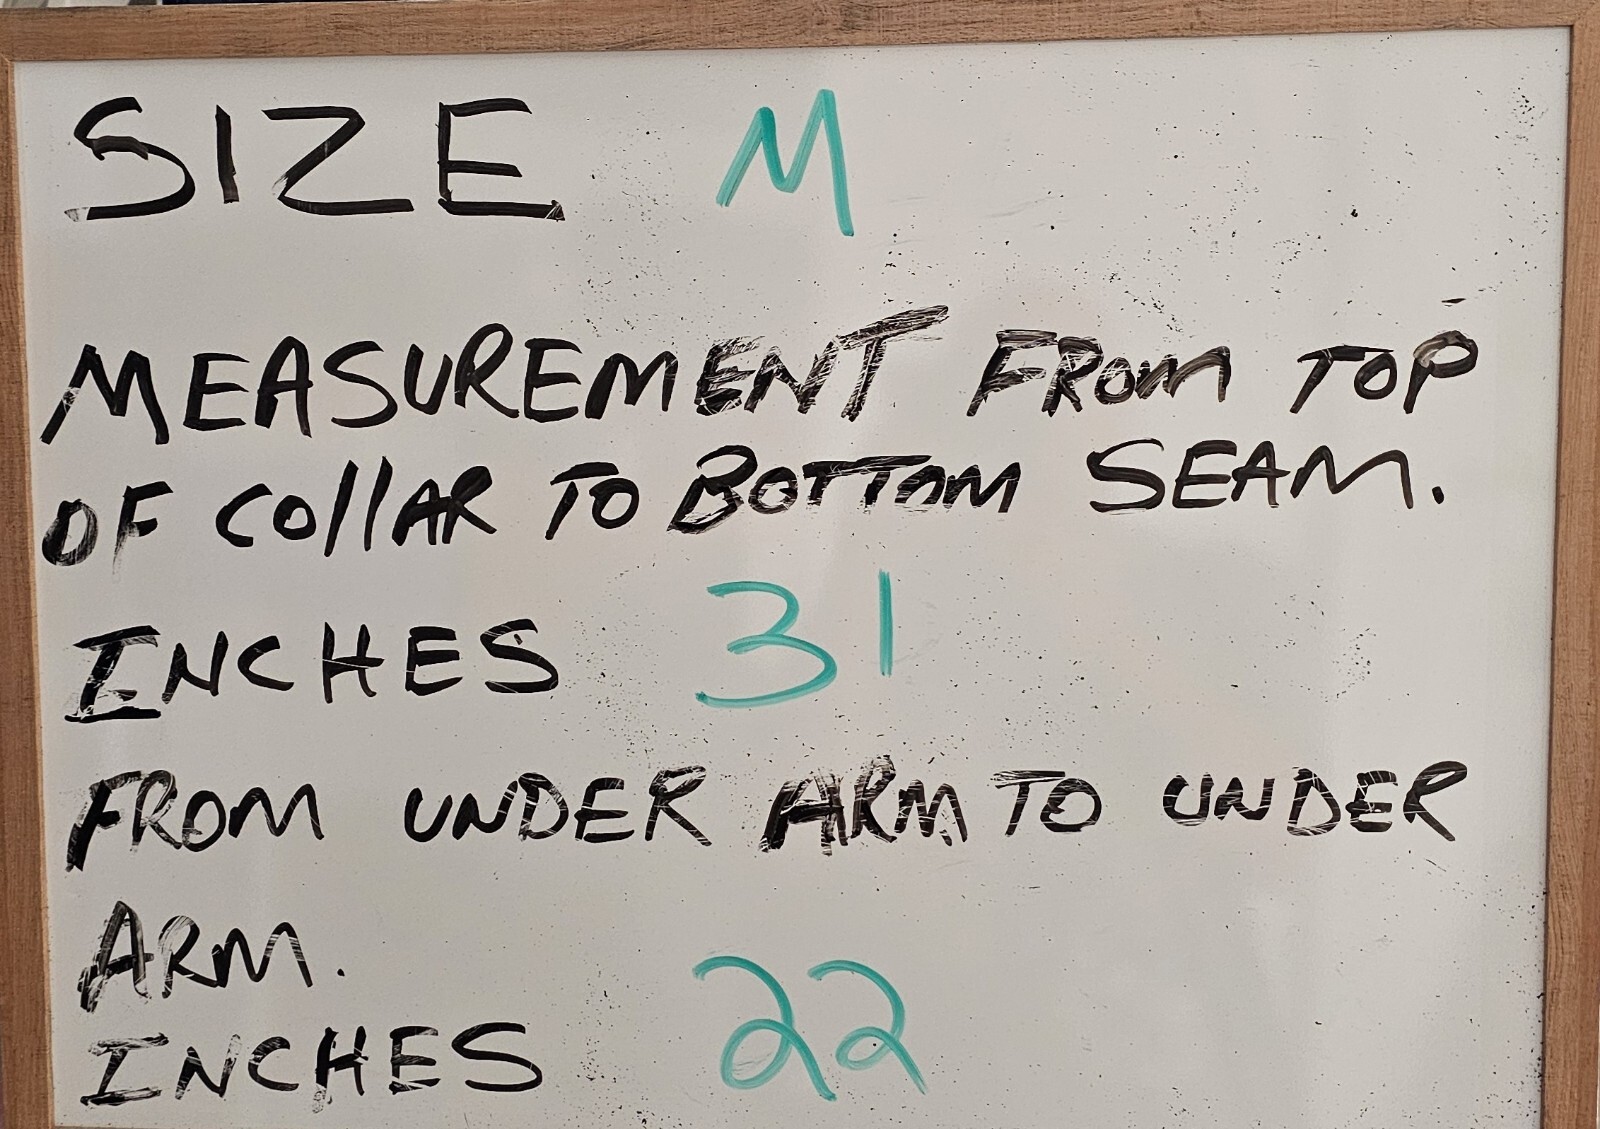 SIZE M
MEASUREMENT FROM TOP
OF COllAR TO BOTTOM SEAM.
INCHES 31
FROM UNDER ARM TO UNDER
ARM.
INCHES 22